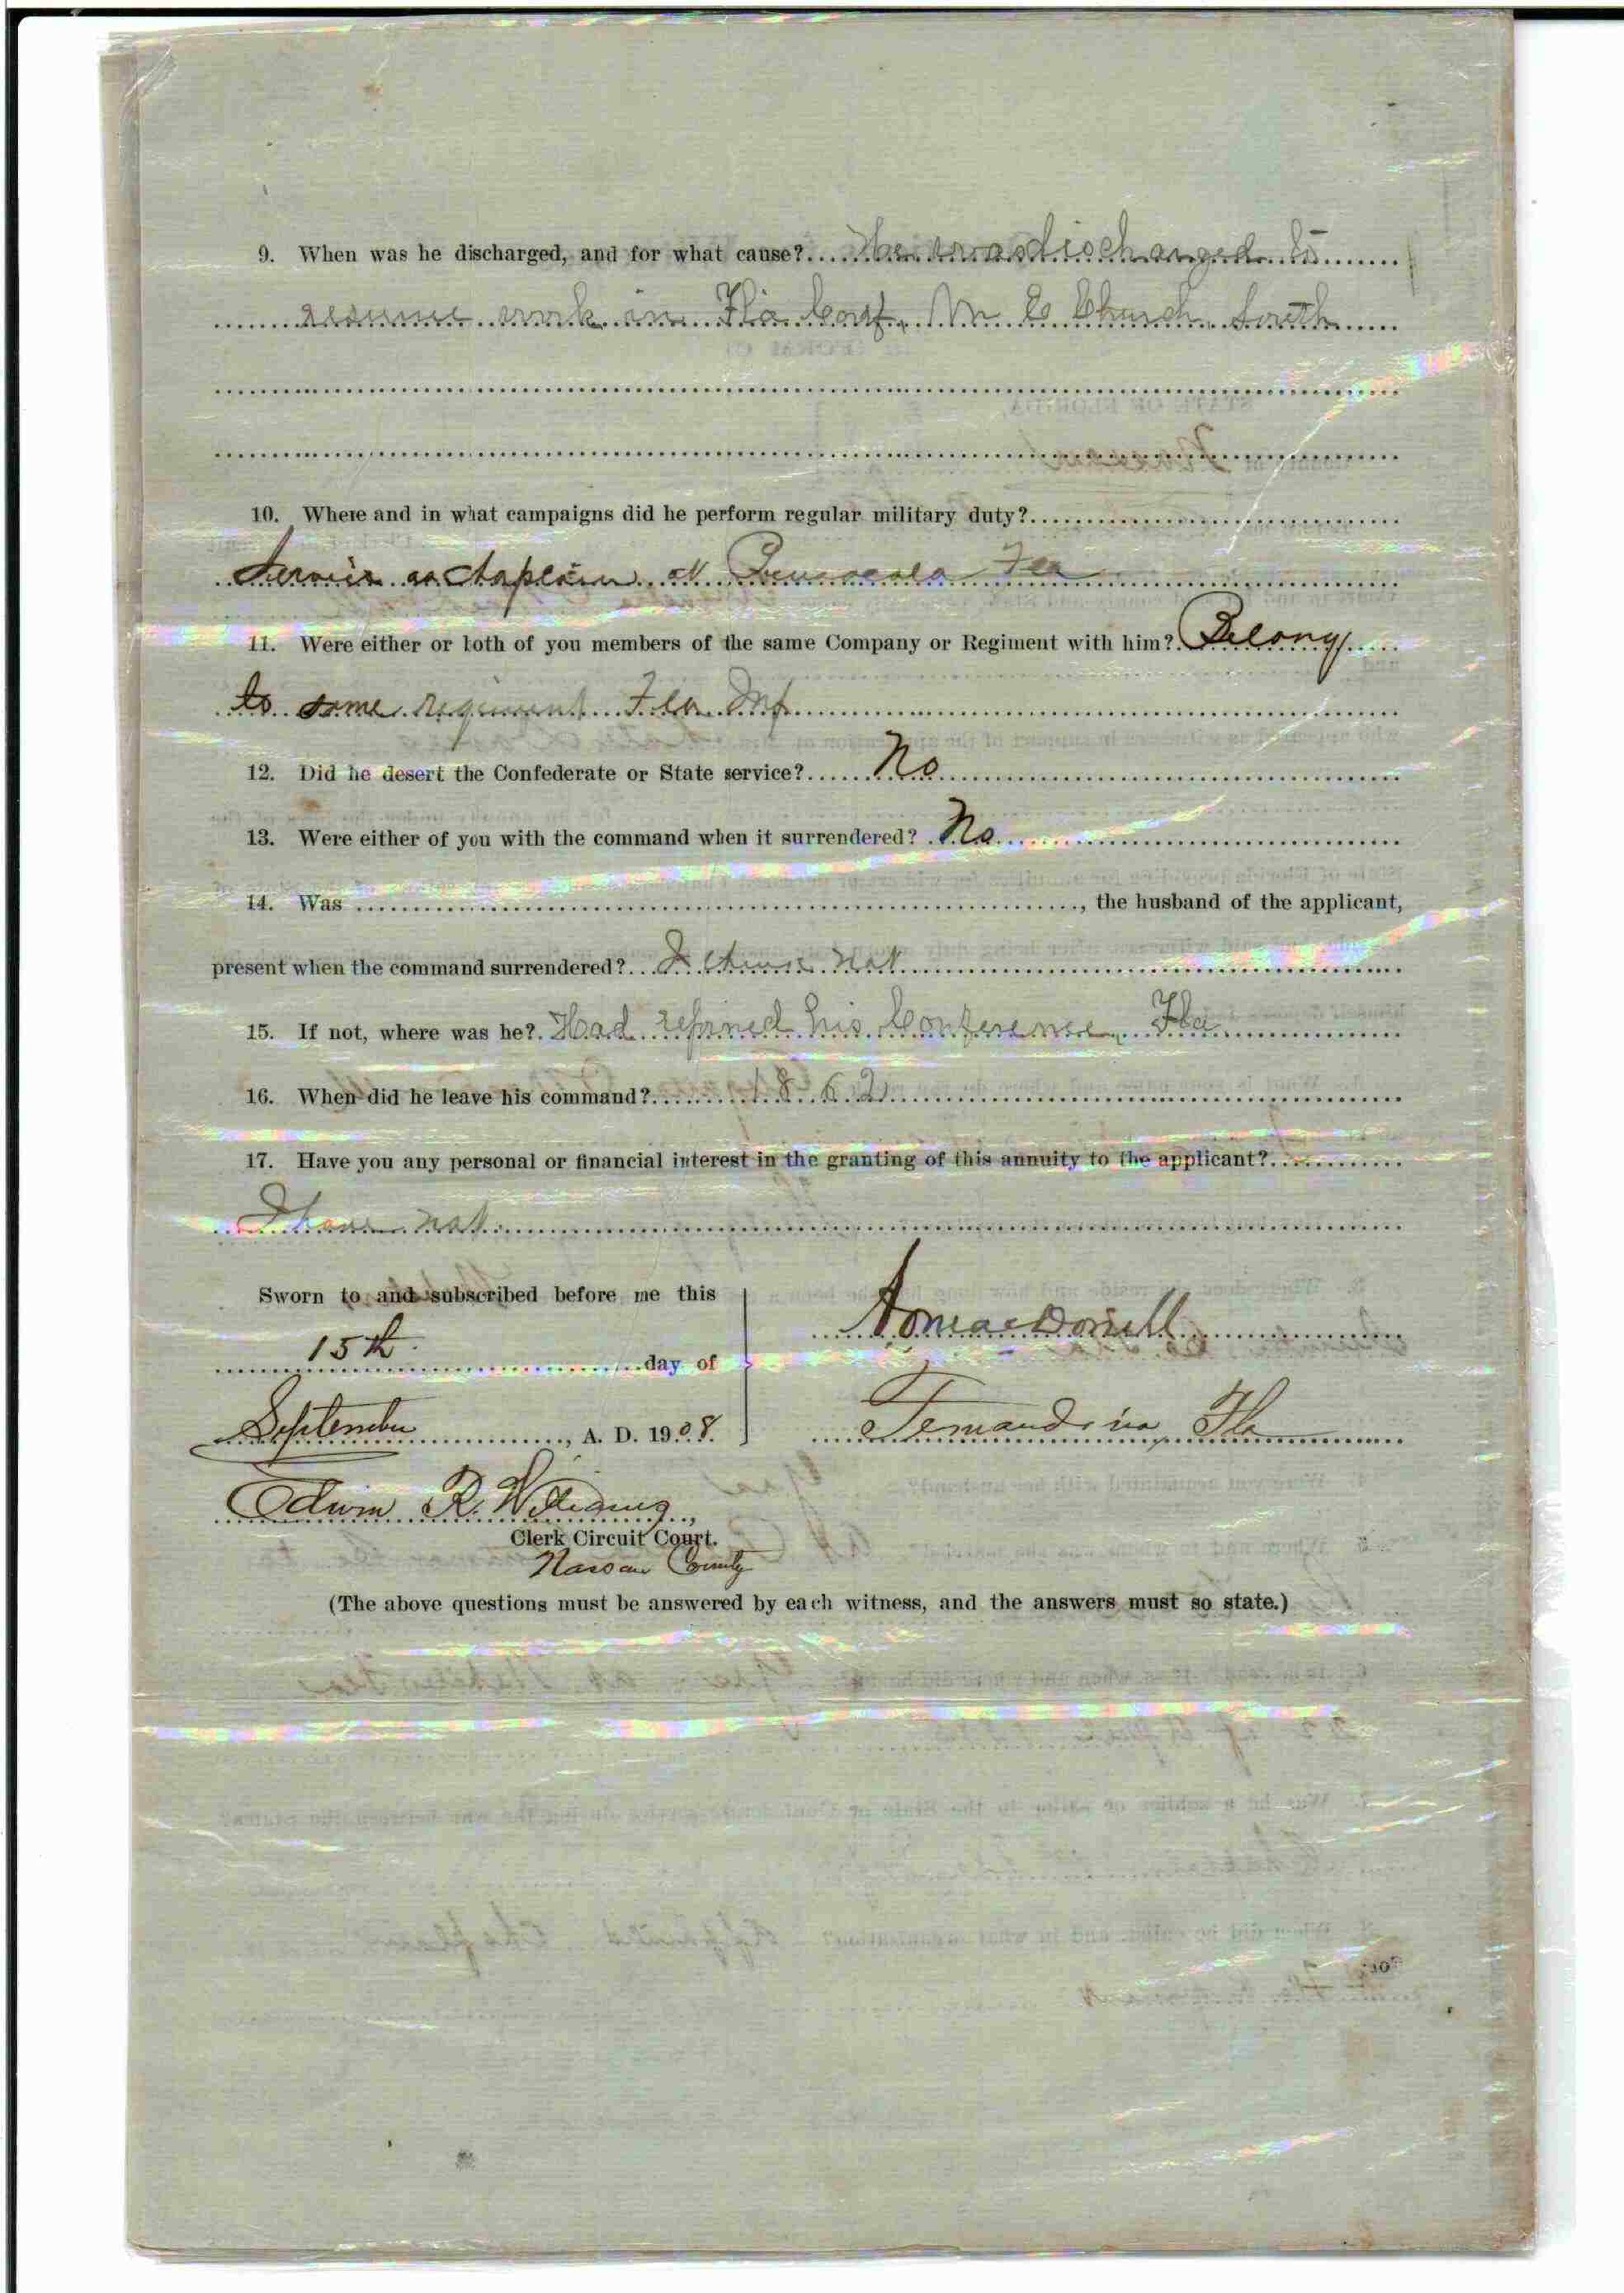 9. When was he discharged, and for what cause? He was discharged to
resume work in Fla Conf, M E Church, South
10. Where and in what campaigns did he perform regular military duty?
Service as Chaplain at Pensacola Fla
11. Were either or both of you members of the same Company or Regiment with him? Belong
to same regiment Fla Inf
12. Did he desert the Confederate or State service? No
13. Were either of you with the command when it surrendered? No
14. Was , the husband of the applicant,
present when the command surrendered? I think not
15. If not, where was he? Had rejoined his Conference, Fla
16. When did he leave his command? 1862
17. Have you any personal or financial interest in the granting of this annuity to the applicant?
I have not
Sworn to and subscribed before me this
15th day of
September , A. D. 1908.
MacDonell
Fernandina, Fla
Edwin R. Williams,
Clerk Circuit Court.
Nassau County
(The above questions must be answered by each witness, and the answers must so state.)